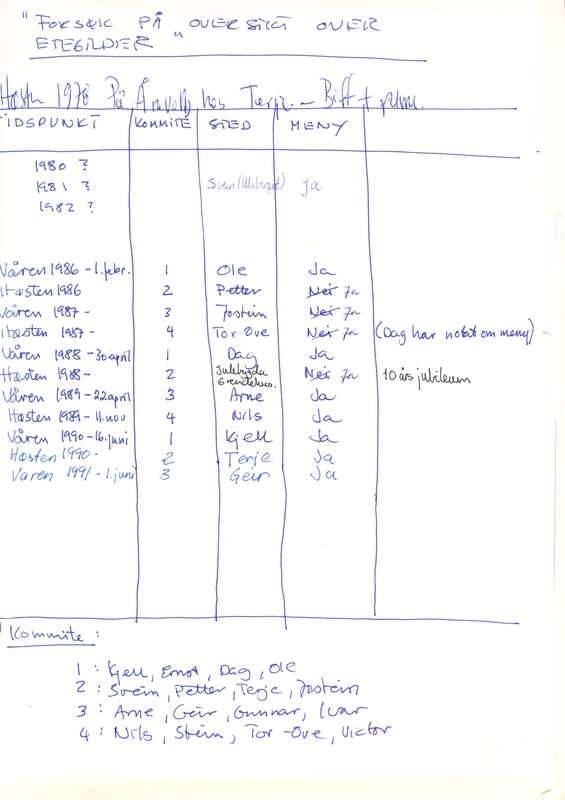 "FORSØK PÅ OVERSIKT OVER
ETEGILDER"
Høsten 1978 På Årvoll, hos Terje. – Biff +
TIDSPUNKT KOMMITÉ STED MENY
1980 ?
1981 ? Svein Ja
1982 ?
Våren 1986 - 1. febr. 1 Ole Ja
Høsten 1986 2 Petter Nei Ja
Våren 1987 - 3 Jostein Nei Ja
Høsten 1987 - 4 Tor-Ove Nei Ja (Dag har notat om meny)
Våren 1988 - 30 april 1 Dag Ja
Høsten 1988 - 2 Julebygda Grendehus. Nei Ja 10 års jubileum
Våren 1989 - 22. april 3 Arne Ja
Høsten 1989 - 11. nov 4 Nils Ja
Våren 1990 - 16. juni 1 Kjell Ja
Høsten 1990 - 2 Terje Ja
Våren 1991 - 1. juni 3 Geir Ja
Kommite :
1 : Kjell, Ernst, Dag, Ole
2 : Svein, Petter, Terje, Jostein
3 : Arne, Geir, Gunnar, Ivar
4 : Nils, Stein, Tor-Ove, Victor